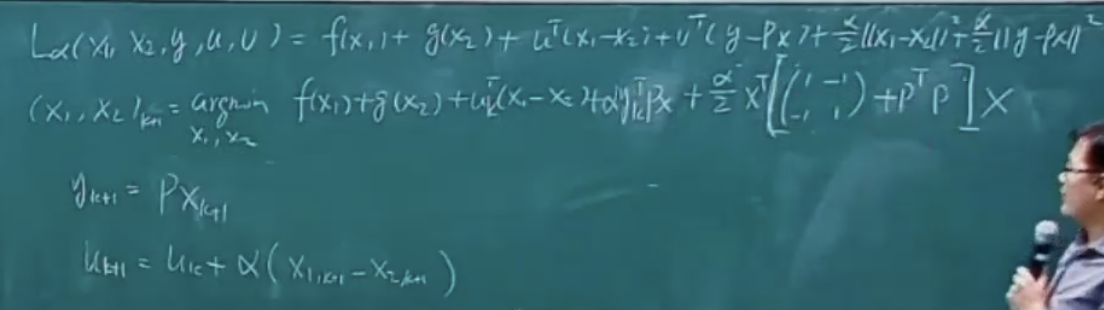 Lα(x₁, x₂, y, u, v) = f(x₁) + g(x₂) + uᵀ(x₁-x₂) + vᵀ(y-Px) + α/2 ||x₁-x₂||² + α/2 ||y-Px||²
(x₁, x₂)ₖ₊₁ = argmin_{x₁, x₂} f(x₁) + g(x₂) + uₖᵀ(x₁-x₂) + αyₖᵀPx + α/2 xᵀ[(1 -1; -1 1) + PᵀP]x
yₖ₊₁ = Pxₖ₊₁
uₖ₊₁ = uₖ + α(x₁,ₖ₊₁ - x₂,ₖ₊₁)